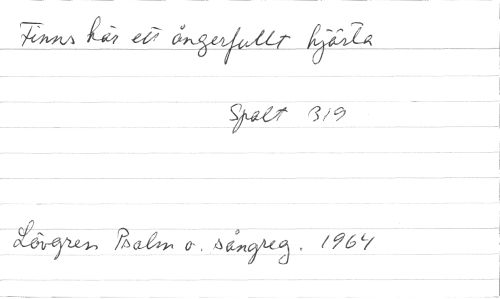 Finns här ett ångerfullt hjärta
Spalt 319
Lövgren Psalm o. sångreg. 1964